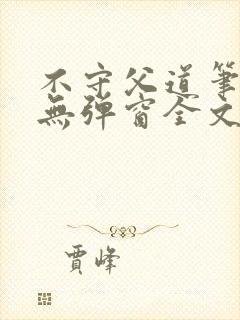 不守父道筆
無彈窗全文
賈峰